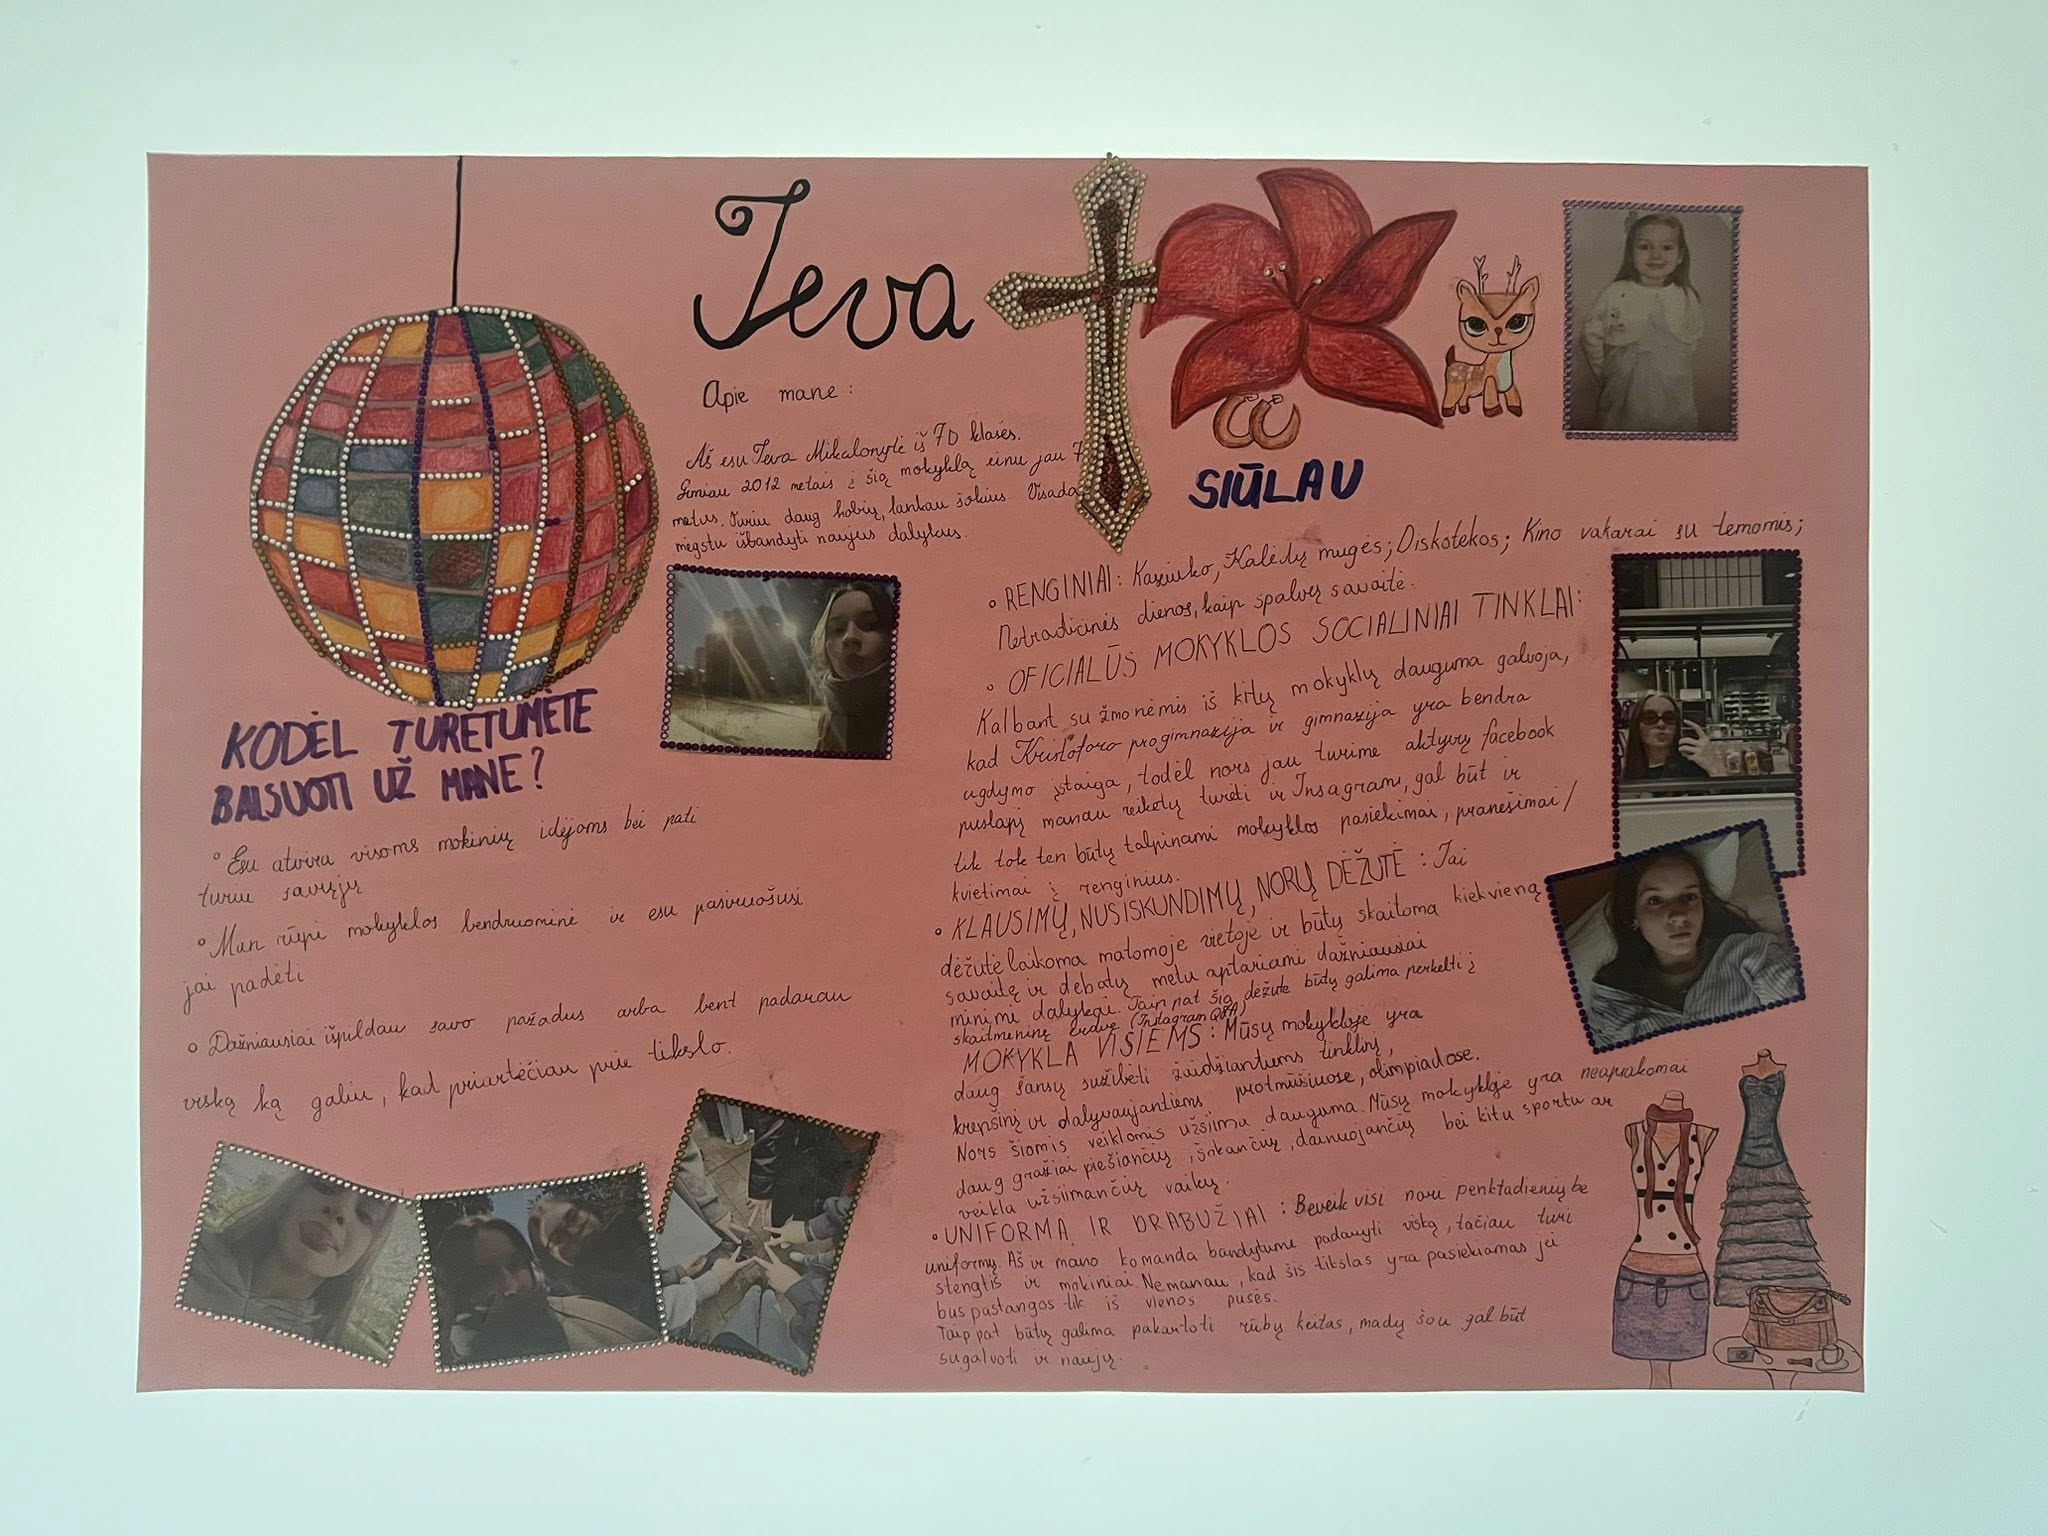 Ieva
Apie mane:
Aš esu Ieva Mikalonytė iš 7D klasės.
Gimiau 2012 metais į šią mokyklą einu jau 7
metus. Turiu daug hobių, lankau šokius. Visada
mėgstu išbandyti naujus dalykus.
KODĖL TURĖTUMĖTE
BALSUOTI UŽ MANE?
° Esu atvira visoms mokinių idėjoms bei pati
turiu savųjų
° Man rūpi mokyklos bendruomėnė ir esu pasiruošusi
jai padėti
° Dažniausiai išpildau savo pažadus arba bent padarau
viską ką galiu, kad priartėčiau prie tikslo.
SIŪLAU
° RENGINIAI: Kaziuko, Kalėdų mugės; Diskotekos; Kino vakarai su temomis;
Netradicinės dienos, kaip spalvų savaitė.
° OFICIALŪS MOKYKLOS SOCIALINIAI TINKLAI:
Kalbant su žmonėmis iš kitų mokyklų dauguma galvoja,
kad Kristoforo progimnazija ir gimnazija yra bendra
ugdymo įstaiga, todėl nors jau turime aktyvų facebook
puslapį manau reikėtų turėti ir Insagram, gal būt ir
tik tok ten būtų talpinami mokyklos pasiekimai, pranešimai/
kvietimai į renginius.
° KLAUSIMŲ, NUSISKUNDIMŲ, NORŲ DĖŽUTĖ: Tai
dėžutė laikoma matomoje vietoje ir būtų skaitoma kiekvieną
savaitę ir debatų metu aptariami dažniausiai
minimi dalykai. Taip pat šią dėžutę būtų galima perkelti į
skaitmeninę erdvę (Instagram Q&A)
MOKYKLA VISIEMS: Mūsų mokykloje yra
daug šansų sužibėti žaidžiantiems tinklinį,
krepšinį ir dalyvaujantiems protmūšiuose, olimpiadose.
Nors šiomis veiklomis užsiima dauguma. Mūsų mokykloje yra neaprakomai
daug gražiai piešiančių, šokančių, dainuojančių bei kitu sportu ar
veikla užsiimančių vaikų.
° UNIFORMA IR DRABUŽIAI: Beveik visi nori penktadienių be
uniformų. Aš ir mano komanda bandytume padaryti viską, tačiau turi
stengtis ir mokiniai. Nemanau, kad šis tikslas yra pasiekiamas jei
bus pastangos tik iš vienos pusės.
Taip pat būtų galima pakartoti rūbų keitas, madų šou gal būt
sugalvoti ir naujų.